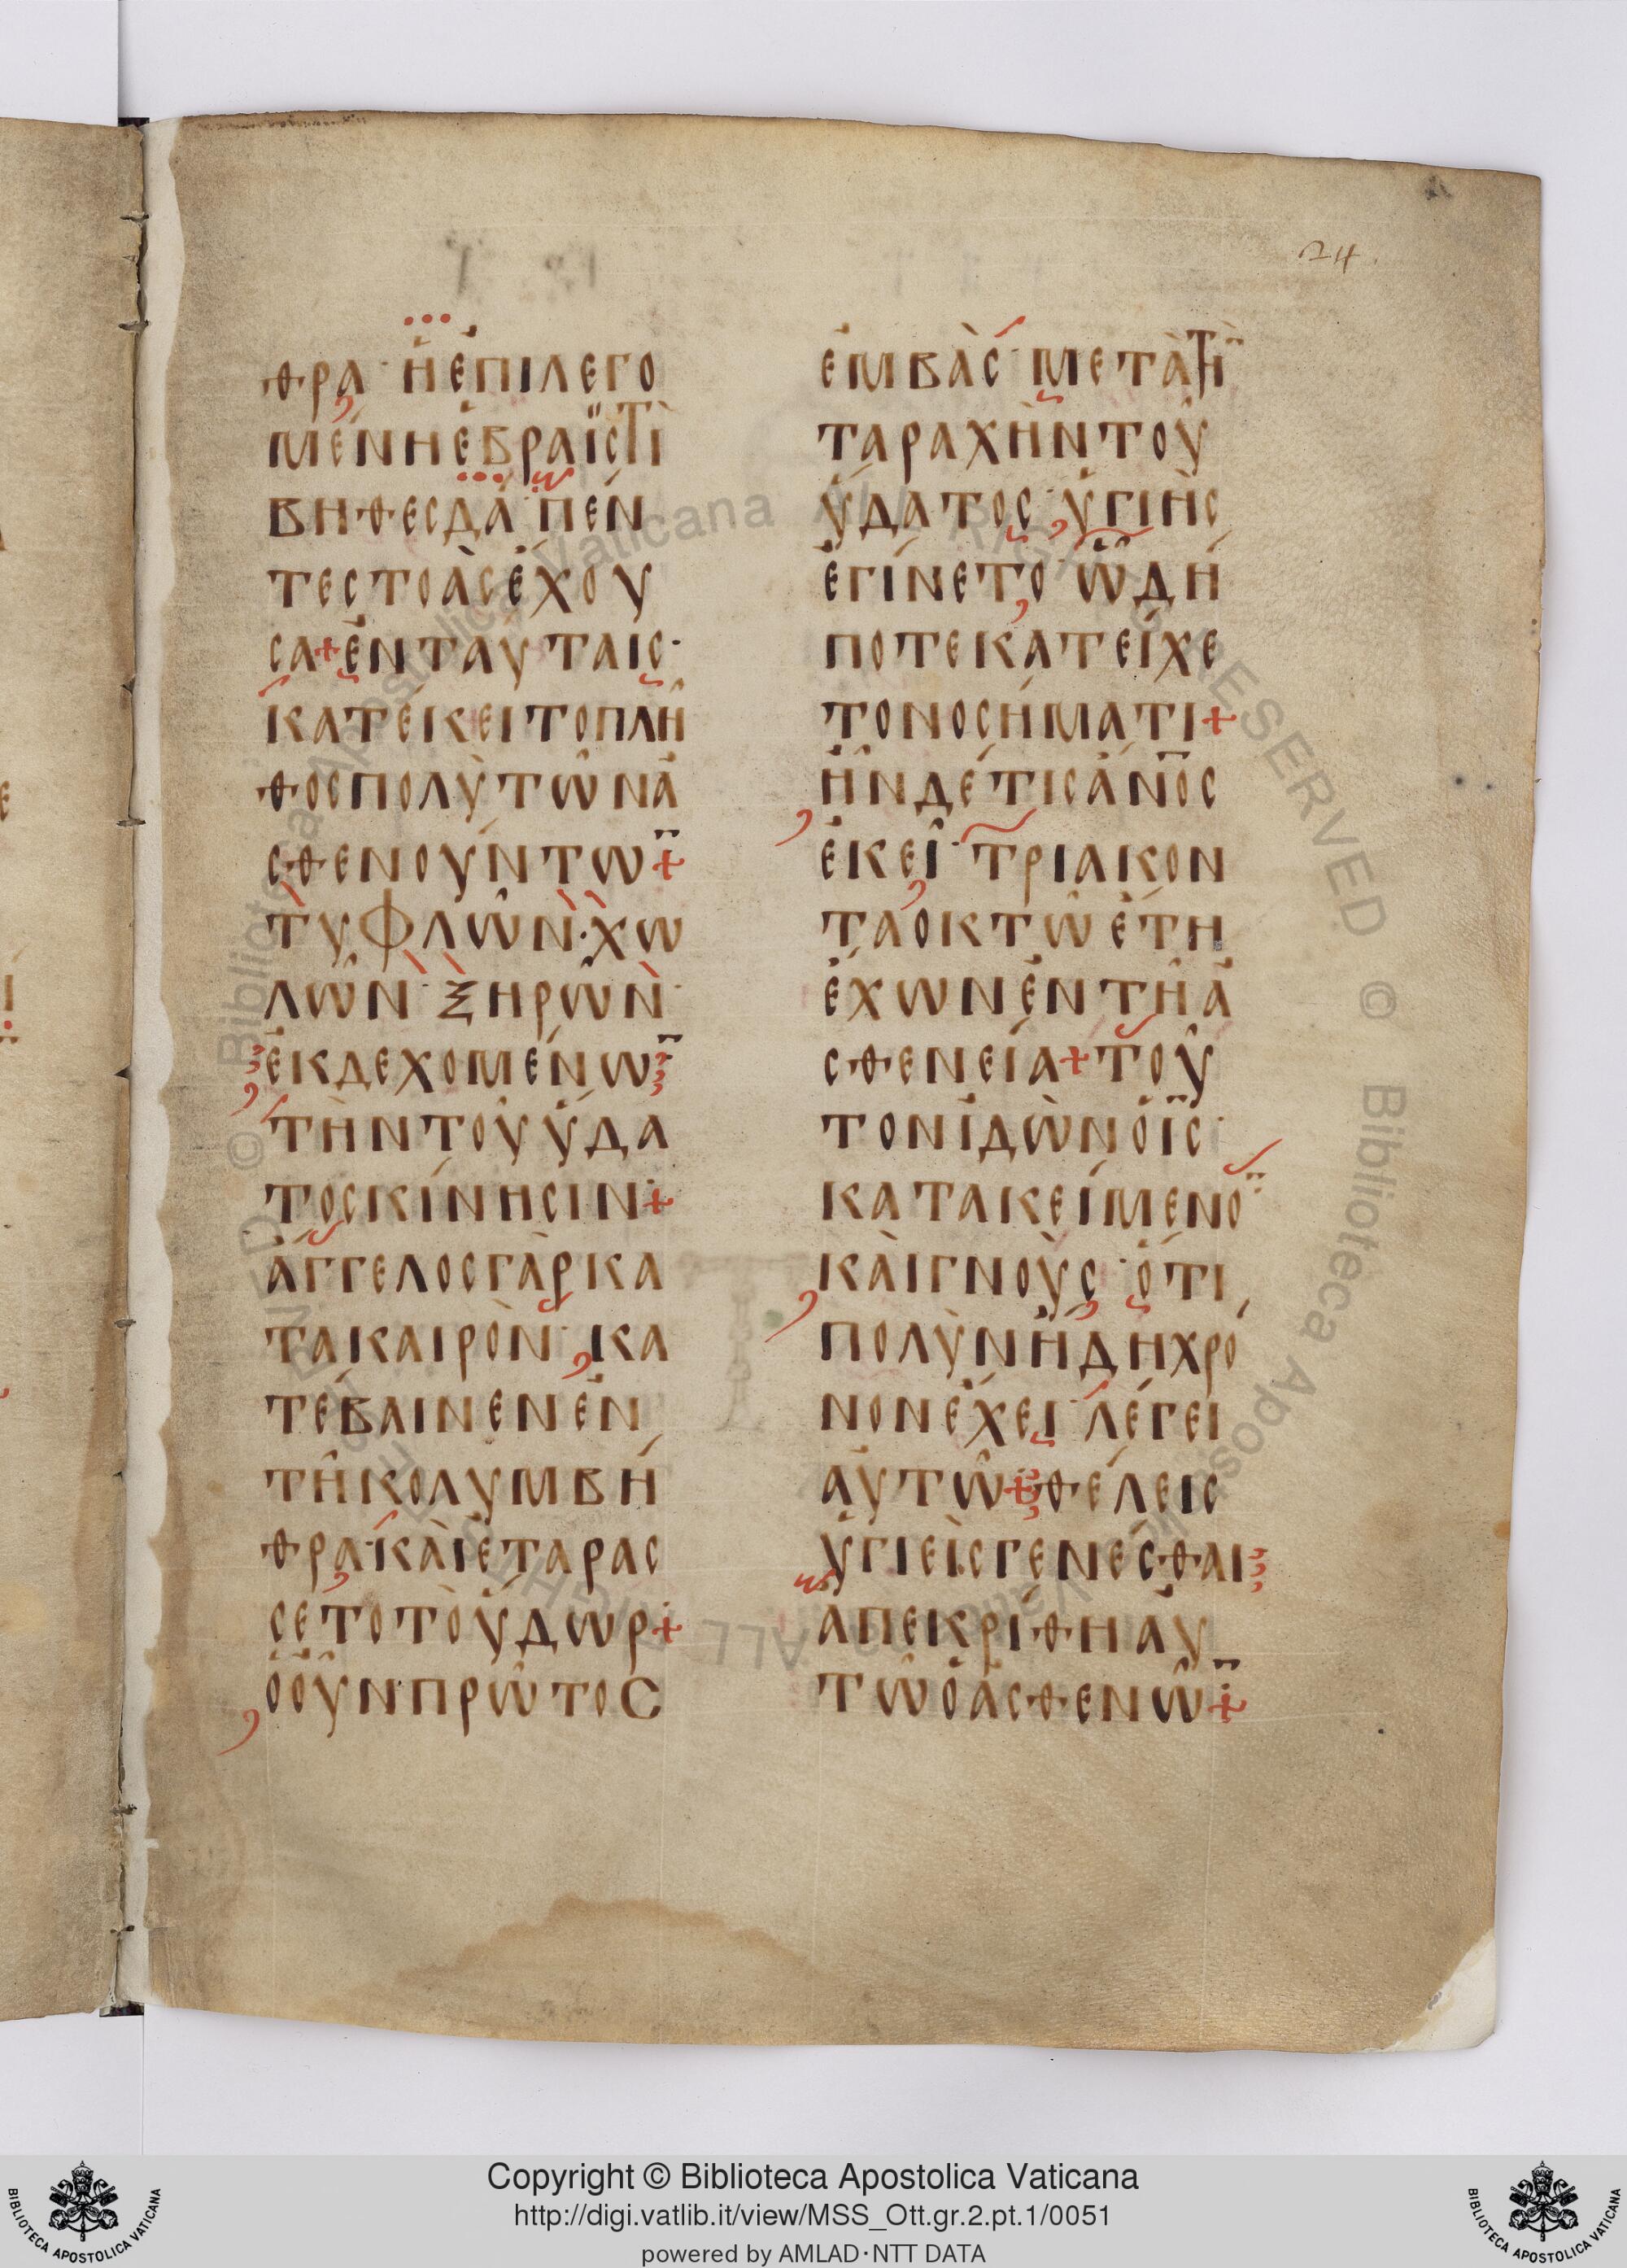 24.
θρα· ἡ ἐπιλεγο
μένη ἑβραϊστὶ
βηθεσδά· πέν
τε στοὰς ἔχου
σα + ἐν ταύταις·
κατέκειτο πλῆ
θος πολὺ τῶν ἀ
σθενούντω̅ +
τυφλῶν· χω
λῶν· ξηρῶν·
ἐκδεχομένω̅
τὴν τοῦ ὕδα
τος κίνησιν +
ἄγγελος γὰρ κα
τα καιρὸν· κα
τέβαινεν ἐν
τῆ κολυμβή
θρα· καὶ ἐταρασ
σετο τὸ ὕδωρ +
ὁ οὖν πρῶτος
ἐμβὰς· μετὰ τὴ̅
ταραχὴν τοῦ
ὕδατος· ὑγιὴς
ἐγίνετο· ᾧ δή
ποτε κατείχε
το νοσήματι +
ἦν δέ τις ἄν̅ος
ἐκεῖ· τριακον
τα οκτῶ ἔτη
ἔχων ἐν τῆ ἀ
σθενεία + τοῦ
τον ἰδὼν ὁ ι̅ς·
κατακείμενο̅
καὶ γνοὺς· ὅτι
πολὺν ἤδη χρό
νον ἔχει· λέγει
αὐτῶ + θέλεις
ὑγιεὶς γενέσθαι
ἀπεκρίθη αὐ
τῶ ὁ ἀσθενῶ̅ +
Copyright © Biblioteca Apostolica Vaticana
http://digi.vatlib.it/view/MSS_Ott.gr.2.pt.1/0051
powered by AMLAD·NTT DATA